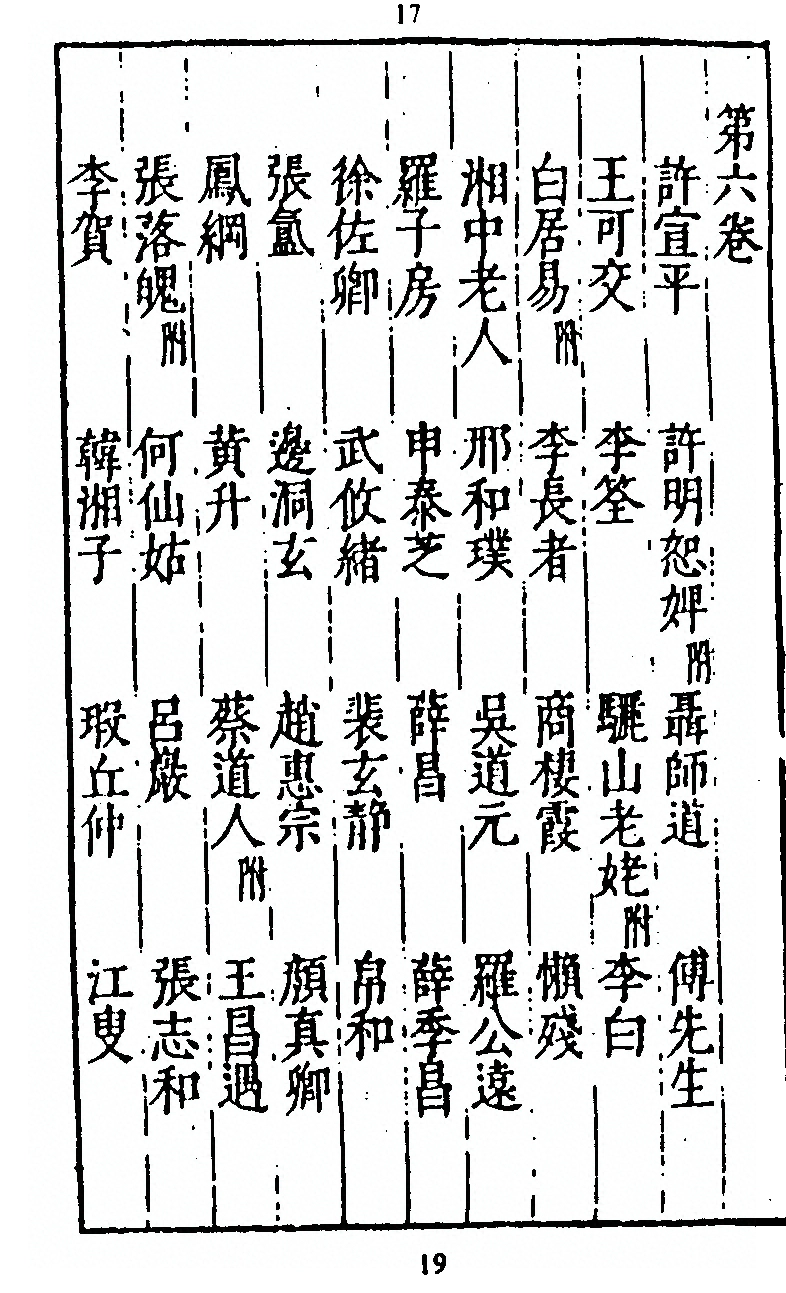 17
第六卷
許宣平 許明恕婢附 聶師道 傅先生
王可交 李筌 驪山老姥附 李白
白居易附 李長者 商棲霞 懶殘
湘中老人 邢和璞 吳道元 羅公遠
羅子房 申泰芝 薛昌 薛季昌
徐佐卿 武攸緒 裴玄静 帛和
張氳 邊洞玄 趙惠宗 顏真卿
鳳綱 黄升 蔡道人附 王昌遇
張落魄附 何仙姑 呂巖 張志和
李賀 韓湘子 瑕丘仲 江叟
19